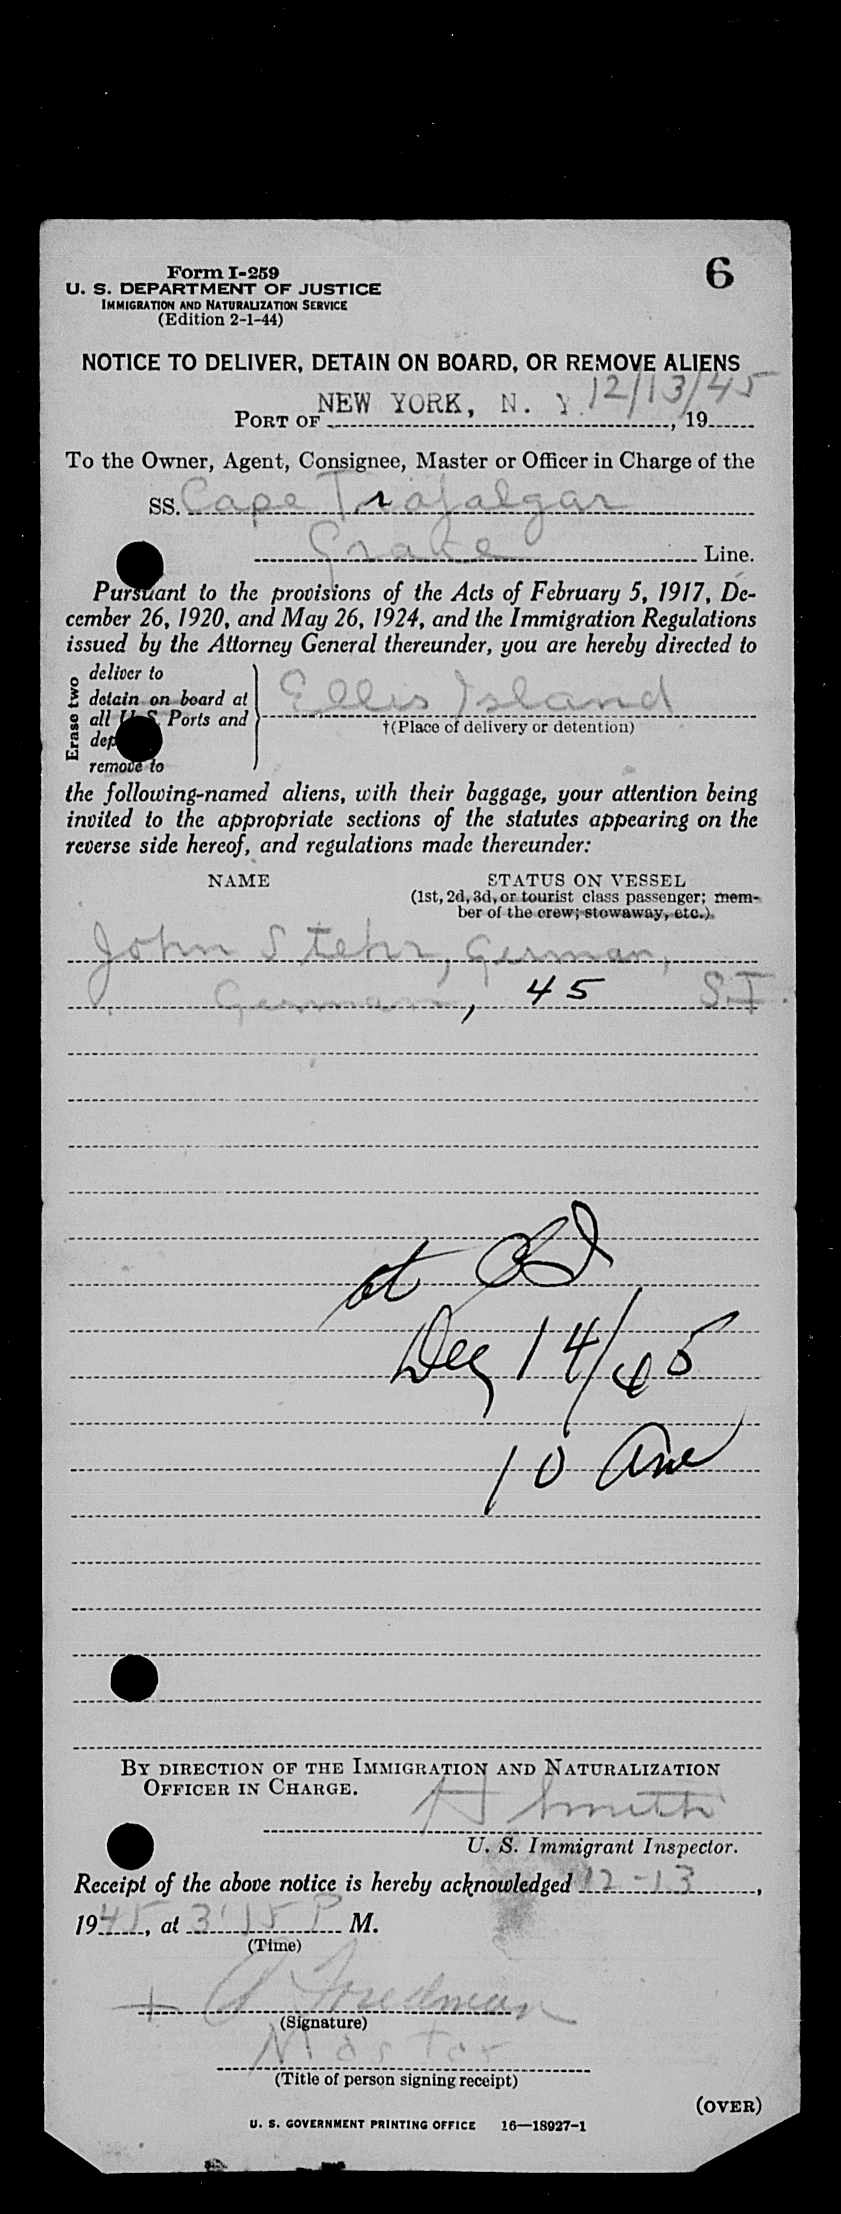 6
Form I-259
U. S. DEPARTMENT OF JUSTICE
IMMIGRATION AND NATURALIZATION SERVICE
(Edition 2-1-44)
NOTICE TO DELIVER, DETAIN ON BOARD, OR REMOVE ALIENS
PORT OF NEW YORK, N. Y. 12/13/45, 19
To the Owner, Agent, Consignee, Master or Officer in Charge of the
SS. Cape Trafalgar
Line.
Pursuant to the provisions of the Acts of February 5, 1917, De-
cember 26, 1920, and May 26, 1924, and the Immigration Regulations
issued by the Attorney General thereunder, you are hereby directed to
Erase two
deliver to
detain on board at
all U. S. Ports and
remove to
Ellis Island
†(Place of delivery or detention)
the following-named aliens, with their baggage, your attention being
invited to the appropriate sections of the statutes appearing on the
reverse side hereof, and regulations made thereunder:
NAME STATUS ON VESSEL
(1st, 2d, 3d, or tourist class passenger; mem-
ber of the crew; stowaway, etc.)
John Stehr, German,
German, 45 S.I.
at
Dec 14/45
10 am
BY DIRECTION OF THE IMMIGRATION AND NATURALIZATION
OFFICER IN CHARGE.
H Smith
U. S. Immigrant Inspector.
Receipt of the above notice is hereby acknowledged 12-13,
1945, at 3:15 P M.
(Time)
(Signature)
Master
(Title of person signing receipt)
(OVER)
U. S. GOVERNMENT PRINTING OFFICE 16—18927-1